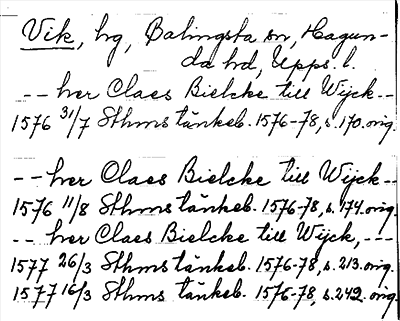 Vik, hg, Balingsta sn, Hagun-
da hd, Upps. l.
-- her Claes Bielcke till Wijck --
1576 31/7 Sthms tänkeb. 1576-78, s. 170. orig.
-- her Claes Bielcke till Wijck --
1576 11/8 Sthms tänkeb. 1576-78, s. 174. orig.
-- her Claes Bielcke till Wijck, ---
1577 26/3 Sthms tänkeb. 1576-78, s. 213. orig.
1577 16/3 Sthms tänkeb. 1576-78, s. 242. orig.